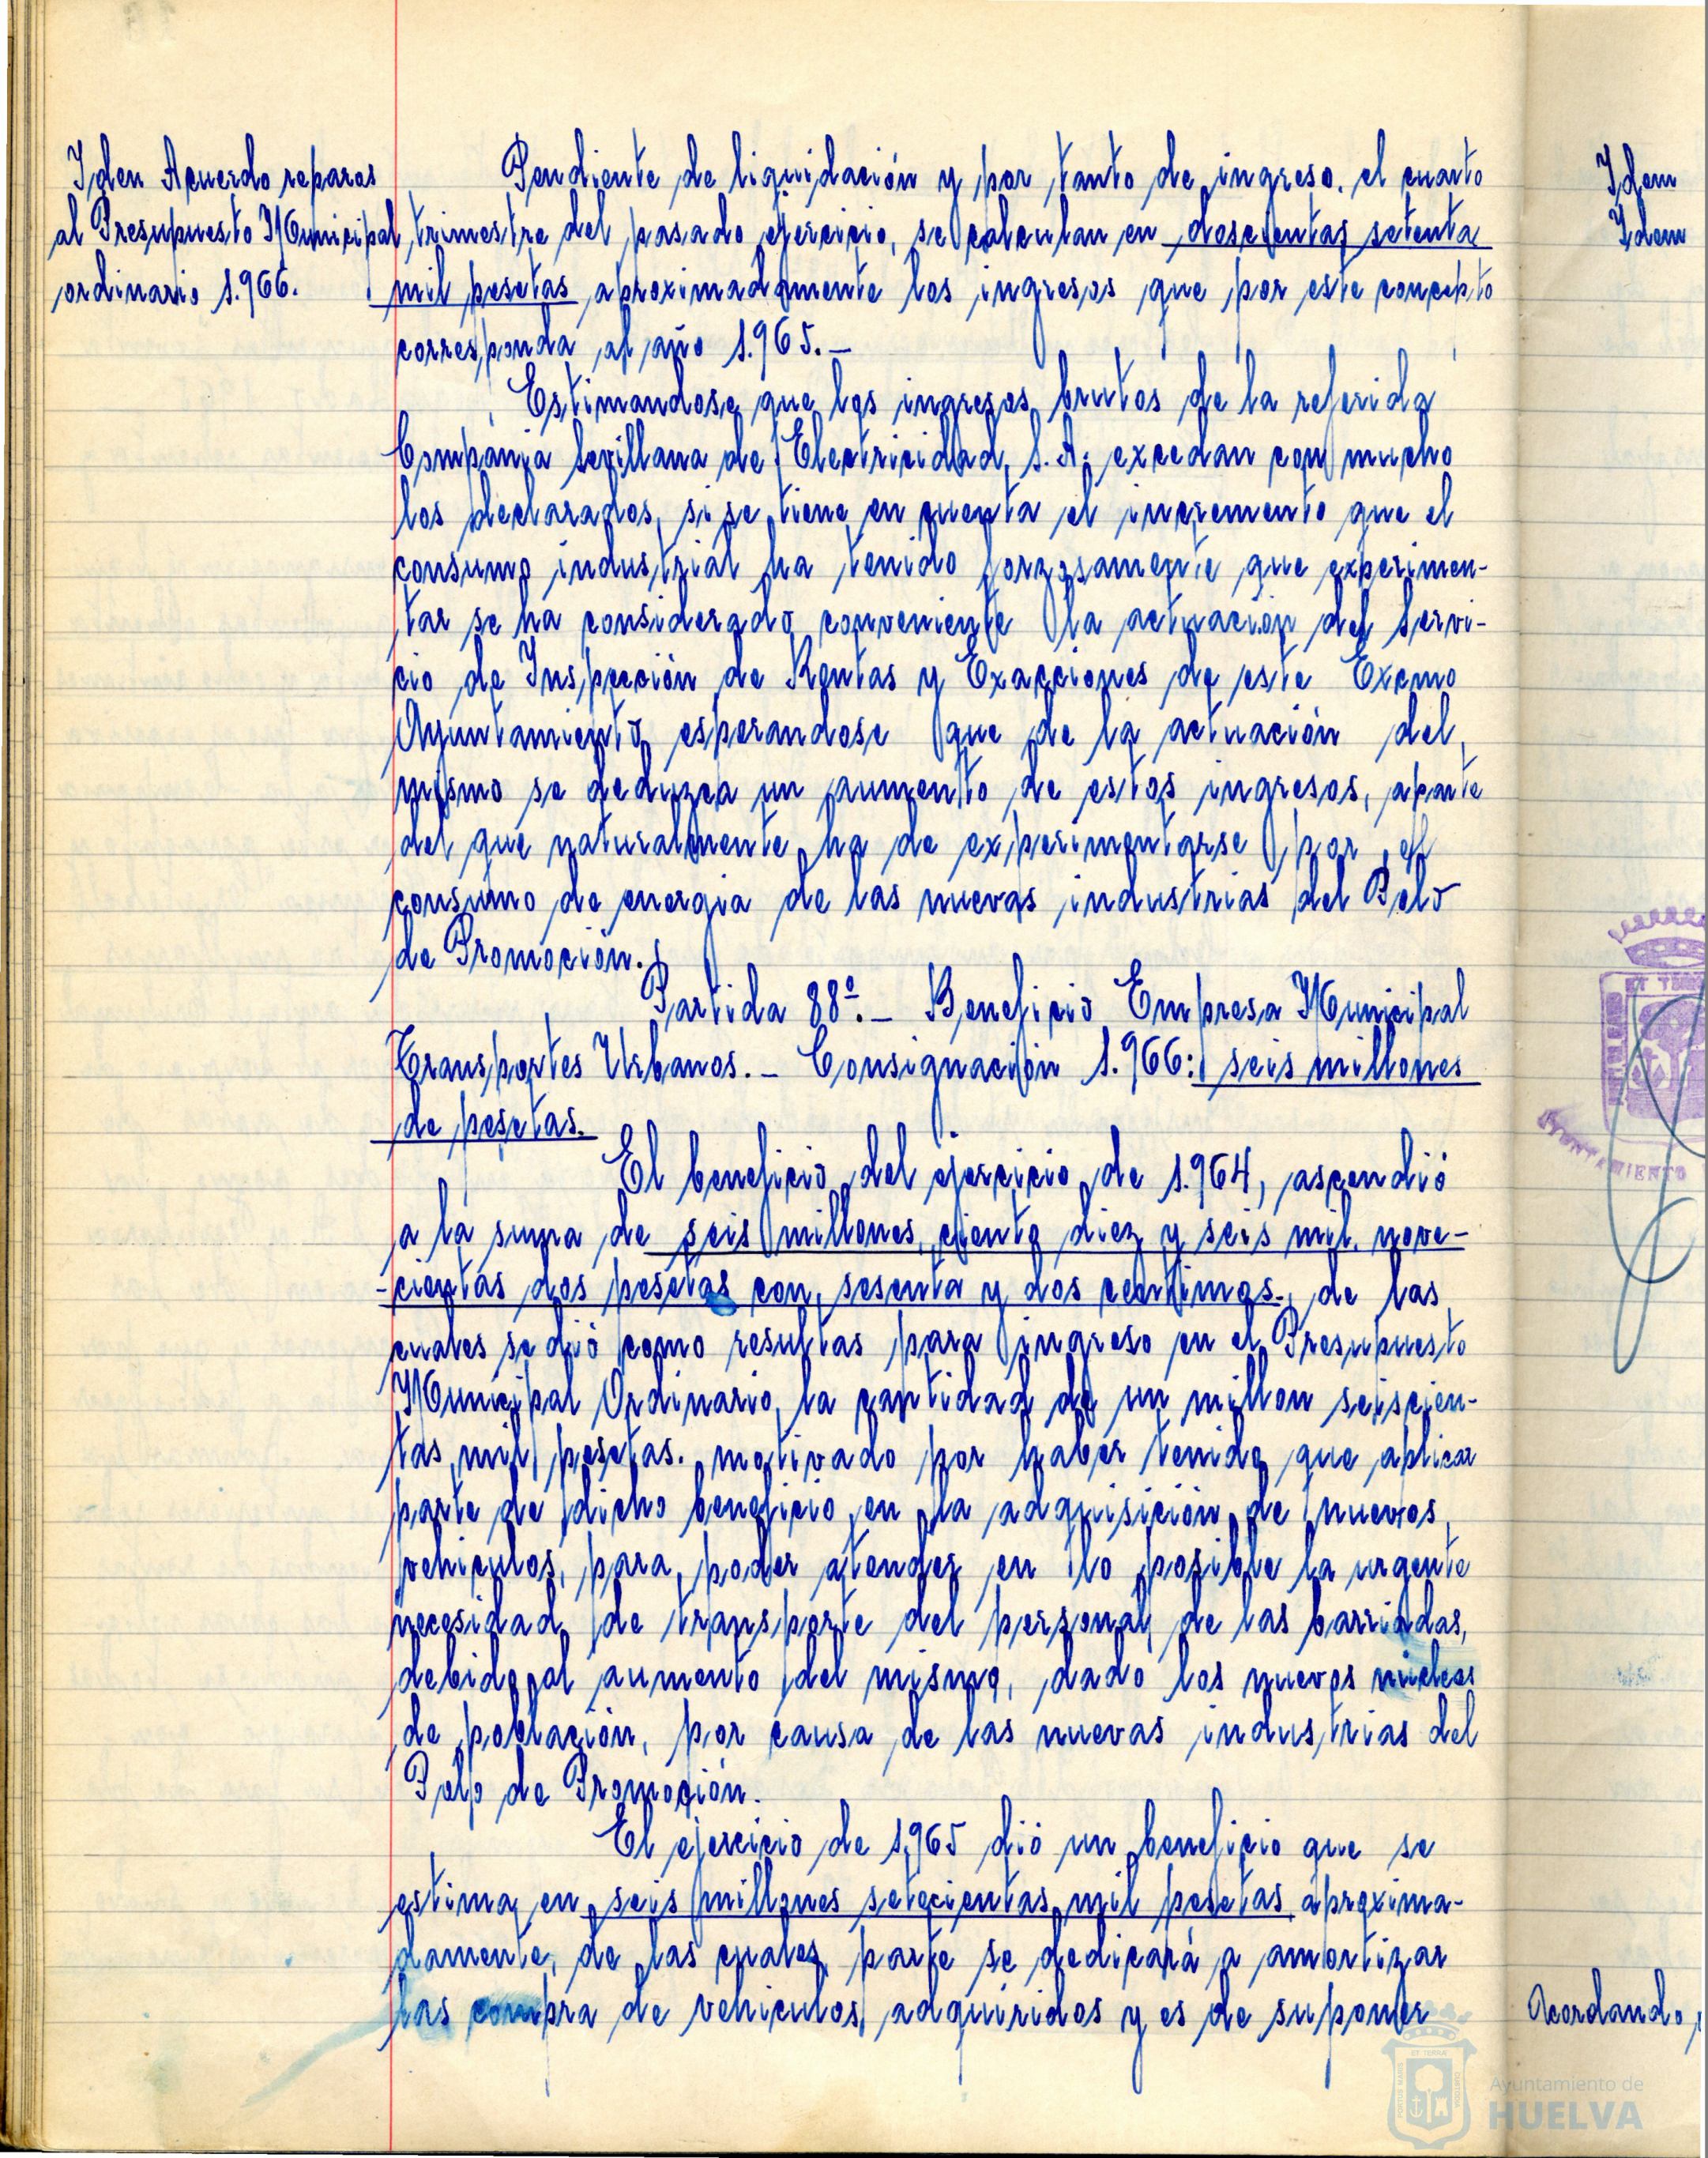 Iden Acuerdo reparos
al Presupuesto Municipal
ordinario 1.966.
Pendiente de liquidación y por tanto de ingreso, el cuarto
trimestre del pasado ejercicio, se calculan en doscientas setenta
mil pesetas aproximadamente los ingresos que por este concepto
corresponda al año 1.965.-
Estimandose que los ingresos brutos de la referida
Compañia Sevillana de Electricidad, S.A. excedan con mucho
los declarados, si se tiene en cuenta el incremento que el
consumo industrial ha tenido forzosamente que experimen-
tar se ha considerado conveniente la actuación del Servi-
cio de Inspección de Rentas y Exacciones de este Excmo
Ayuntamiento esperandose que de la actuación del
mismo se deduzca un aumento de estos ingresos, aparte
del que naturalmente ha de experimentarse por el
consumo de energia de las nuevas industrias del Polo
de Promoción.
Partida 88º.- Beneficio Empresa Municipal
Transportes Urbanos.- Consignación 1.966: seis millones
de pesetas.
El beneficio del ejercicio de 1.964, ascendió
a la suma de seis millones, ciento diez y seis mil, nove-
-cientas dos pesetas con, sesenta y dos centimos., de las
cuales se dió como resultas para ingreso en el Presupuesto
Municipal Ordinario, la cantidad de un millon seiscien-
tas mil pesetas. motivado por haber tenido que aplicar
parte de dicho beneficio en la adquisición de nuevos
vehiculos, para poder atender en lo posible la urgente
necesidad de transporte del personal de las barriadas,
debido al aumento del mismo, dado los nuevos nucleos
de población, por causa de las nuevas industrias del
Polo de Promoción.
El ejercicio de 1.965 dió un beneficio que se
estima en seis millones setecientas mil pesetas aproxima-
damente, de las cuales parte se dedicará a amortizar
las compra de vehiculos adquiridos y es de suponer
Idem
Idem
ET TERRA
AYUNTAMIENTO
Acordando,
Ayuntamiento de
HUELVA